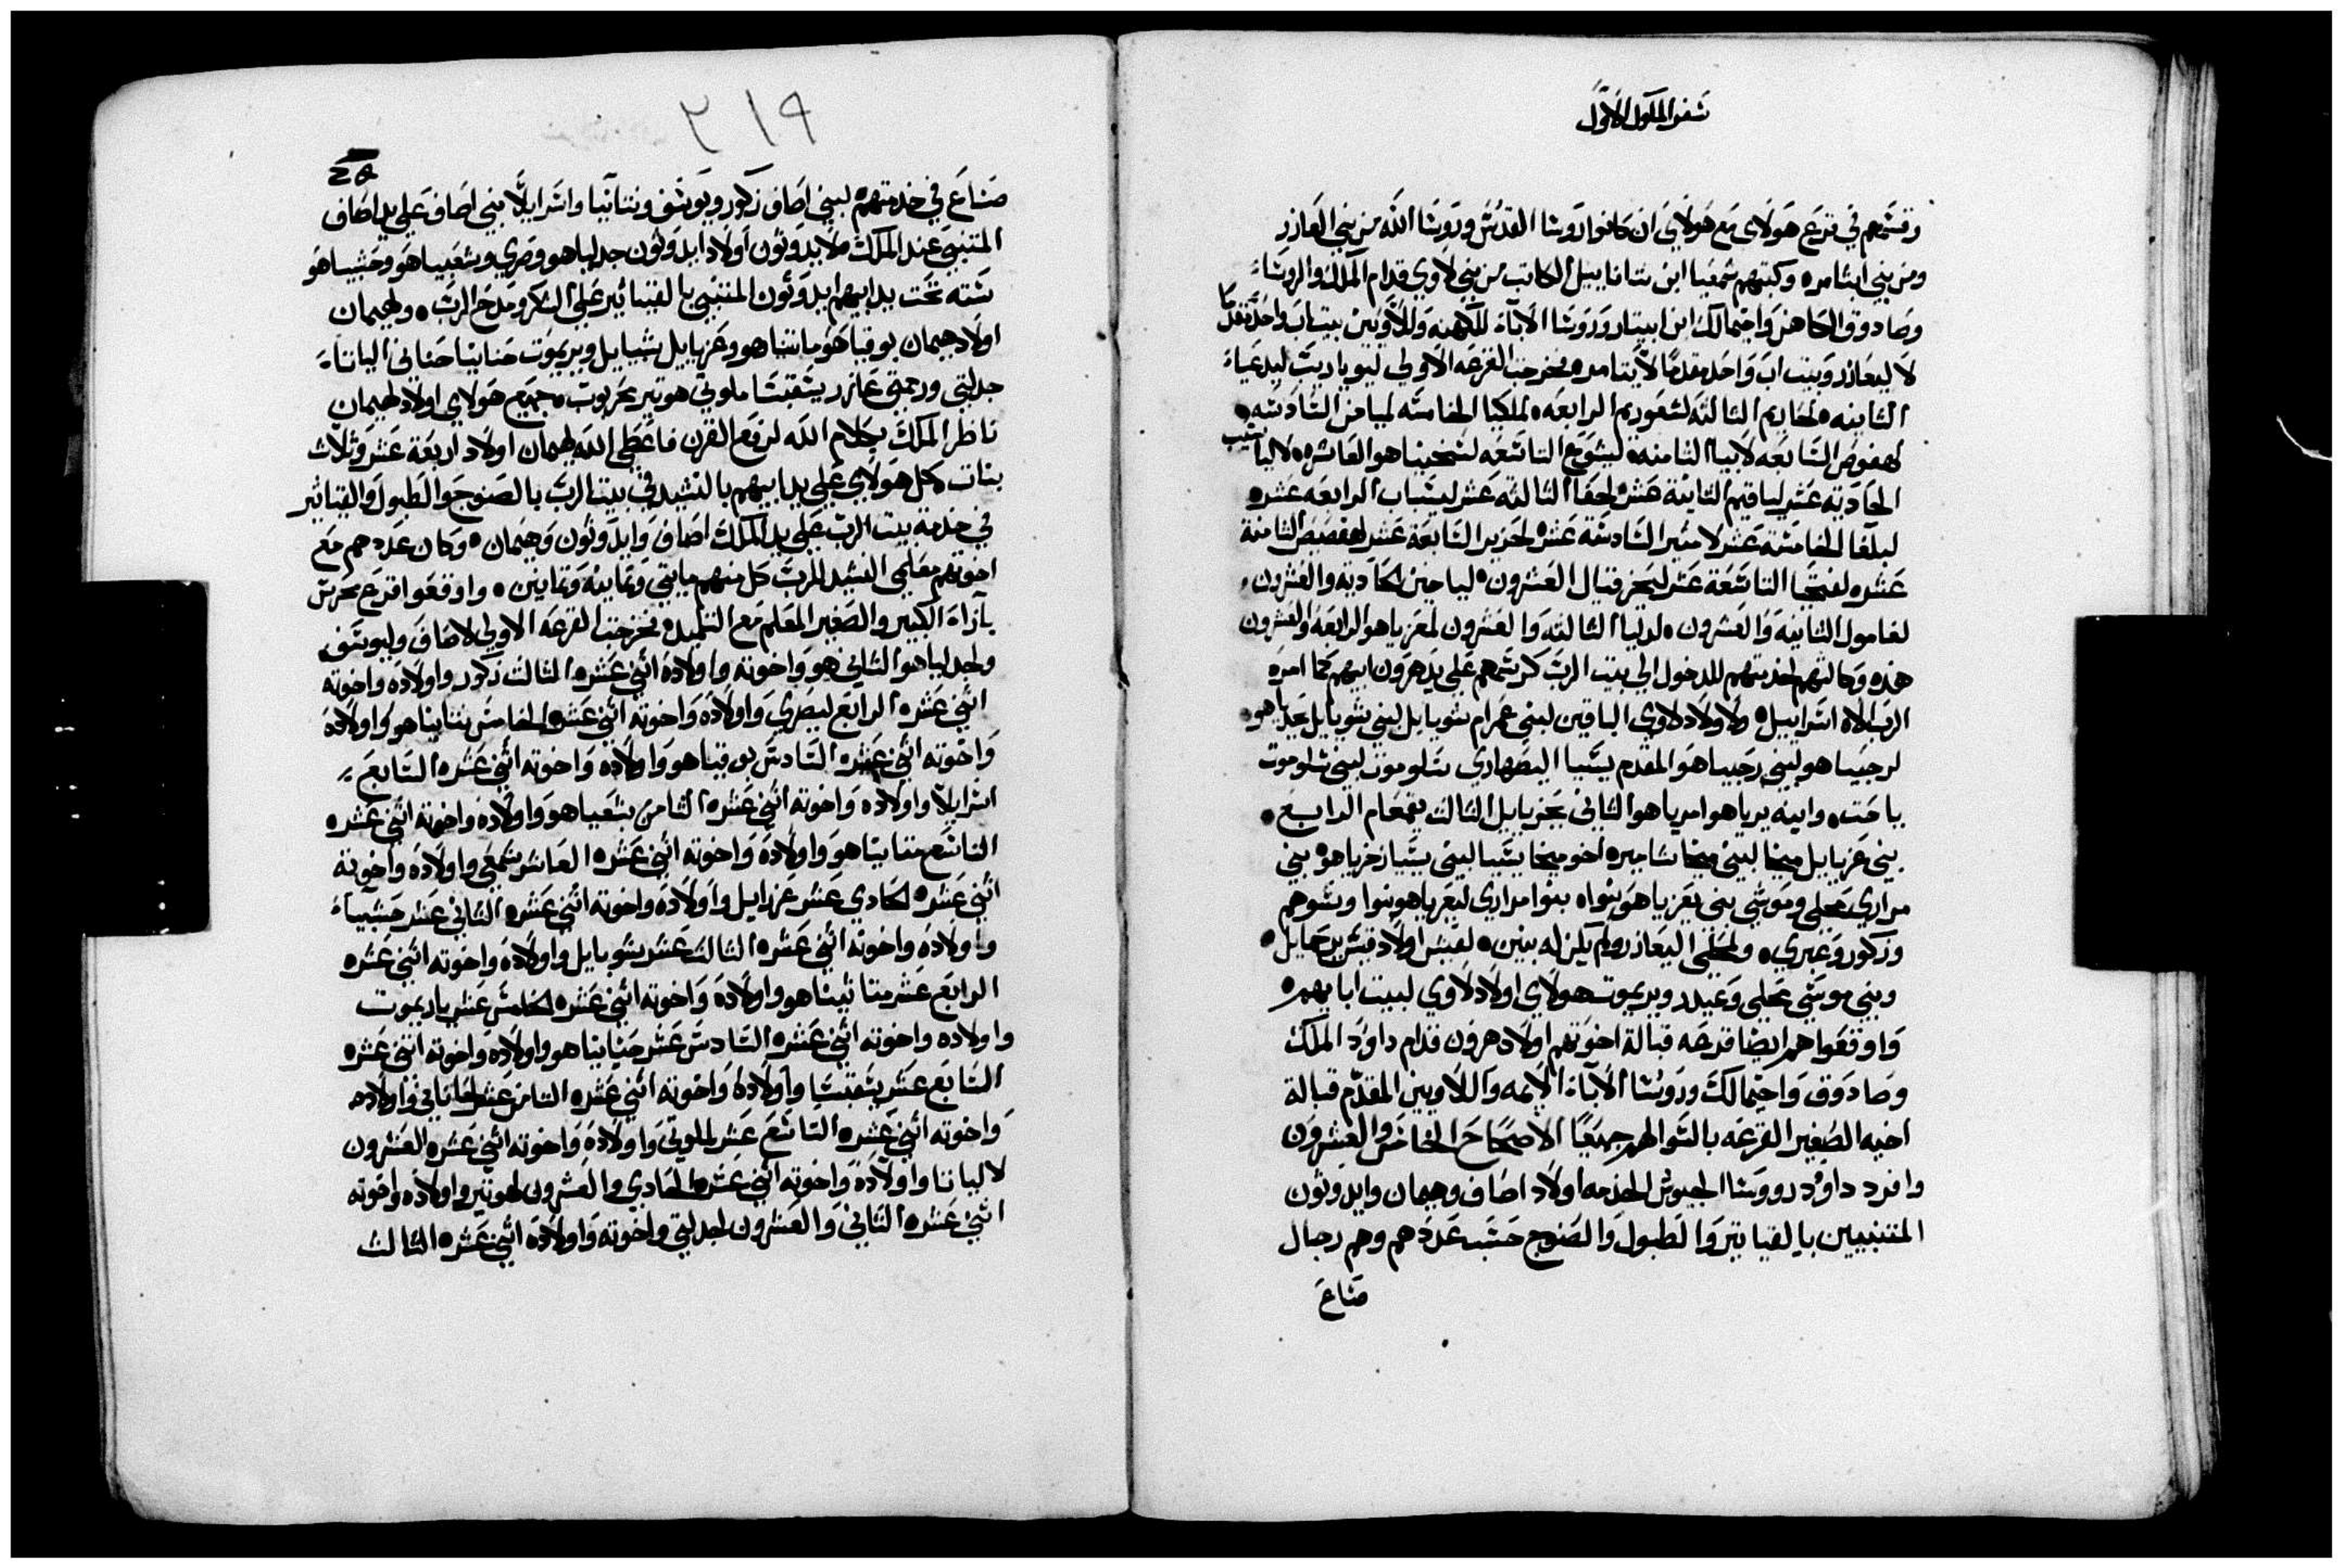 سفر الملوك الاول
وقسمهم في قرع هولاى مع هولاى ان كانوا روسا القدس وروسا الله من بني العازر
ومن بني ايثامر وكتبهم شمعيا ابن نتنانابيل الكاتب من بني لاوي قدام الملك والروساء
وصادوق الكاهن واخيمالك ابن ابيتار وروسا الاباء للكهنه وللاويين بيت اب واحد مقدما
لا ليعازر وبيت اب واحد مقدما لايتامر فخرجت القرعه الاولي ليوياديب ليدعياء
الثانيه لحاريم الثالثه لشعوريم الرابعه لملكيا الخامسه لميامن السادسه
لهقوص السابعه لابيا الثامنه ليشوع التاسعه لشخنيا هو العاشره لاليا شيب
الحاديه عشر لياقيم الثانية عشر لحفا الثالثه عشر ليشباب الرابعه عشر
لبلغا الخامسه عشر لامير السادسة عشر لحزير السابعة عشر لهفصيص الثامنة
عشر لفتحيا التاسعة عشر ليحزقيال العشرون لياخين الحادية والعشرون
لغامول الثانيه والعشرون لدليا الثالثه والعشرون لمعزيا هو الرابعه والعشرون
هذه وكالتهم لخدمتهم للدخول الي بيت الرب كرسمهم علي يد هرون ابيهم كما امره
الرب الاه اسراييل ولاولاد لاوي الباقين لبني عمرام شوبايل لبني شوبايل يحدياهو
لرحبيا هو لبني رحبيا هو المقدم يشيا اليصهاري شلوموت لبني شلوموت
ياحت وابنه يرياهو امرياهو الثاني يحزيايل الثالث يقمعام الرابع
بني عزيايل ميخا لبني ميخا شامير اخو ميخا يشيا لبني يشيا زخريا هو بني
مراري محلي وموشي بني يعزيا هو بنواه بنوا مراري ليعزياهو بنوا وشوهم
وزكور وعبري ولمحلي اليعازر ولم يكن له بنين لقيش اولاد قيش يرحمايل
وبني موشي محلي وعيدر ويريموت هولاي اولاد لاوي لبيت ابايهم
واوقعوا هم ايضا قرعه قبالة اخوتهم اولاد هرون قدام داود الملك
وصادوق واخيمالك وروسا الاباء الايمه واللاويين المقدم قبالة
اخيه الصغير القرعه بالسوا لهم جميعا الاصحاح الخامس والعشرون
وافرد داود روسا الجيوش لخدمه اولاد اصاف وهيمان وايدوثون
المتنبيين بالقياتير والطبول والصنوج حسب عددهم وهم رجال
صناع
٢١٩
صناع في خدمتهم لبني اصاف زكور ويوسف ونتانيا واسرايلا بني اصاف علي يد اصاف
المتنبي عند الملك لايدوثون اولاد ايدوثون جدلياهو وصري وشعيياهو وحشبياهو
سته تحت يد ابيهم ايدوثون المتنبي بالقيتاتير علي الشكر ومدح الرب ولهيمان
اولاد هيمان بوقياهو ماتنياهو وعزيايل شبيايل ويريموت حنانيا حناني الياتاء
جدلتي ورممتي عازر يشقبشا ملوتي هوتير محزيوت جميع هولاي اولاد لهيمان
ناظر الملك بكلام الله لرفع القرن فاعطي الله لهيمان اولاد اربعة عشر وثلاث
بنات كل هولاي علي يد ابيهم بالنشيد في بيت الرب بالصنوج والطبول والقياتير
في خدمة بيت الرب علي يد الملك اصاف وايدوثون وهيمان وكان عددهم مع
اخوتهم معلمي النشيد للرب كل منهم مايتي وثمانيه وثمانين واوقعوا قرع محرس
بازاء الكبير والصغير المعلم مع التلميد فخرجت القرعه الاولي لاصاف وليوسف
ولجدلياهو الثاني هو واخوته واولاده اثني عشر الثالث زكور واولاده واخوته
اثني عشر الرابع ليصري واولاده واخوته اثني عشر الخامس نتانياهو واولاده
واخوته اثني عشر السادس بوقياهو واولاده واخوته اثني عشر السابع
اسرايلا واولاده واخوته اثني عشر الثامن يشعياهو واولاده واخوته اثني عشر
التاسع متانيا هو واولاده واخوته اثني عشر العاشر شمعي واولاده واخوته
اثني عشر الحادي عشر عزرايل واولاده واخوته اثني عشر الثاني عشر حشبياء
واولاده واخوته اثني عشر الثالث عشر شوبايل واولاده واخوته اثني عشر
الرابع عشر متاتيا هو واولاده واخوته اثني عشر الخامس عشر ياريموت
واولاده واخوته اثني عشر السادس عشر حنانيا هو واولاده واخوته اثني عشر
السابع عشر يشقبشا واولاده واخوته اثني عشر الثامن عشر لحاناني واولاده
واخوته اثني عشر التاسع عشر لملوتي واولاده واخوته اثني عشر العشرون
لالياتا واولاده واخوته اثني عشر الحادي والعشرون لهوتير واولاده واخوته
اثني عشر الثاني والعشرون لجدلتي واخوته واولاده اثني عشر الثالث